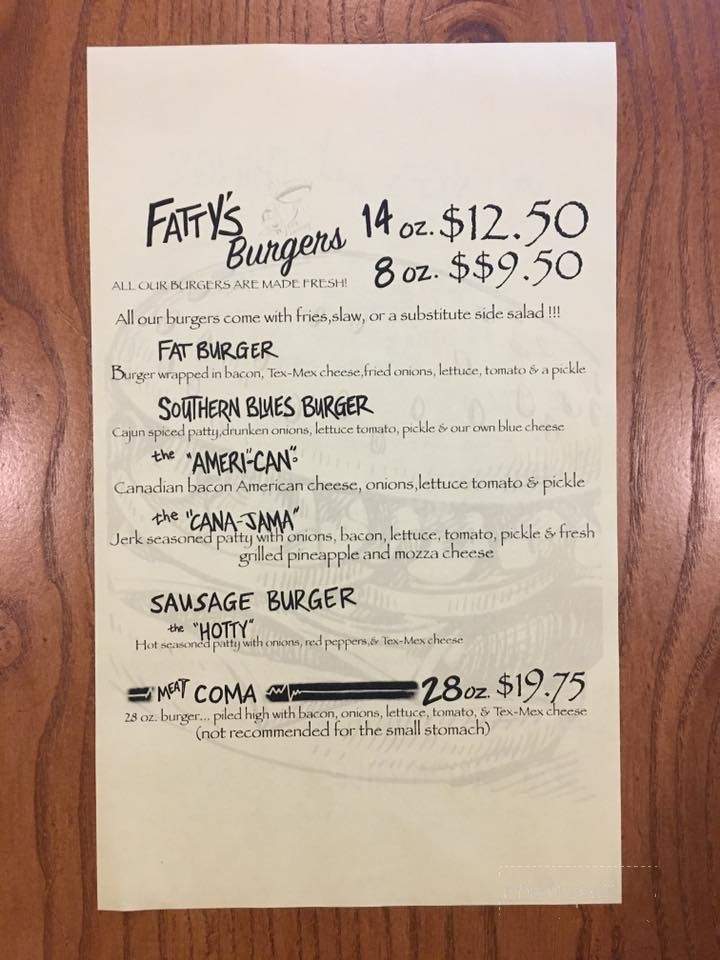 FATTY'S 14 oz. $12.50
Burgers 8 oz. $$9.50
ALL OUR BURGERS ARE MADE FRESH!
All our burgers come with fries,slaw, or a substitute side salad !!!
FAT BURGER
Burger wrapped in bacon, Tex-Mex cheese,fried onions, lettuce, tomato & a pickle
SOUTHERN BLUES BURGER
Cajun spiced patty,drunken onions, lettuce tomato, pickle & our own blue cheese
the "AMERI"-CAN".
Canadian bacon American cheese, onions,lettuce tomato & pickle
the "CANA-JAMA"
Jerk seasoned patty with onions, bacon, lettuce, tomato, pickle & fresh
grilled pineapple and mozza cheese
SAUSAGE BURGER
the "HOTTY"
Hot seasoned patty with onions, red peppers,& Tex-Mex cheese
MEAT COMA 28oz. $19.75
28 oz. burger... piled high with bacon, onions, lettuce, tomato, & Tex-Mex cheese
(not recommended for the small stomach)